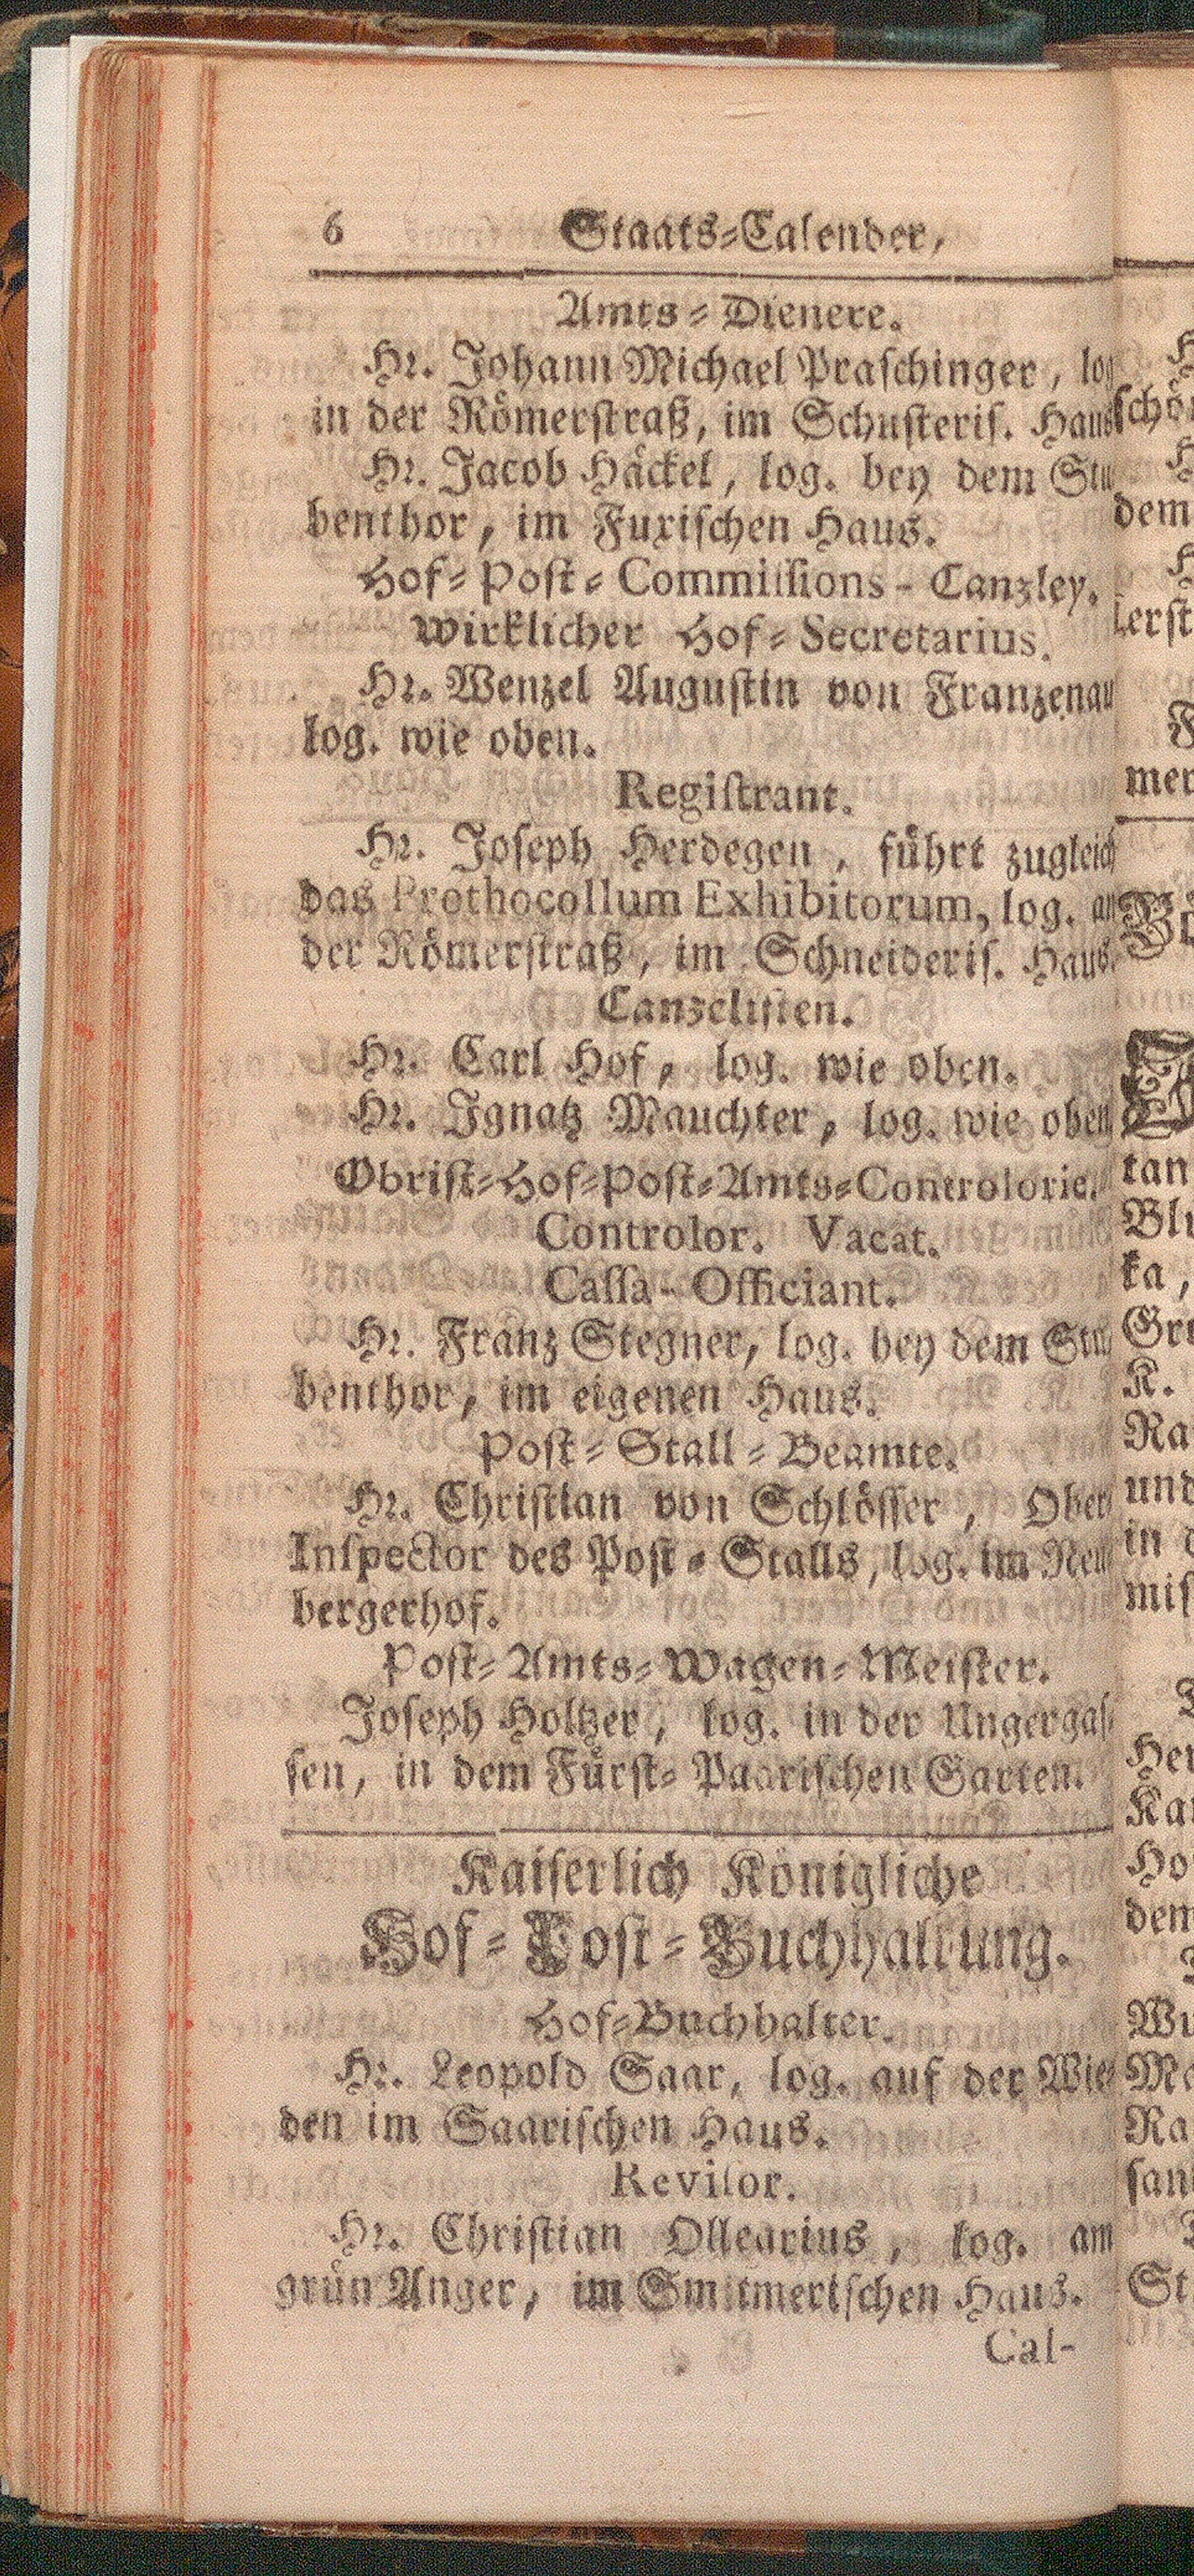 6 Staats=Calender,
Amts=Dienere.
Hr. Johann Michael Praschinger, log
in der Römerstraß, im Schusteris. Haus
Hr. Jacob Häckel, log. bey dem Stu
benthor, im Fuxischen Haus.
Hof=Post=Commissions-Canzley.
Wirklicher Hof=Secretarius.
Hr. Wenzel Augustin von Franzenau
log. wie oben.
Registrant.
Hr. Joseph Herdegen, führt zugleich
das Prothocollum Exhibitorum, log. an
der Römerstraß, im Schneideris. Haus.
Canzelisten.
Hr. Carl Hof, log. wie oben.
Hr. Ignatz Mauchter, log. wie oben
Obrist=Hof=Post=Amts=Controlorie.
Controlor. Vacat.
Cassa-Officiant.
Hr. Franz Stegner, log. bey dem Stu
benthor, im eigenen Haus.
Post=Stall=Beamte.
Hr. Christian von Schlösser, Ober
Inspector des Post=Stalls, log. im Neu
bergerhof.
Post=Amts=Wagen=Meister.
Joseph Holtzer, log. in der Ungergas=
sen, in dem Fürst=Paarischen Garten.
Kaiserlich Königliche
Hof=Post=Buchhaltung.
Hof=Buchhalter.
Hr. Leopold Saar, log. auf der Wie=
den im Saarischen Haus.
Revisor.
Hr. Christian Ollearius, log. am
grün Anger, im Haus.
Cal-
schö
dem
lerst
mer
tan
Blu
ka,
Gr
K.
Ra
und
in d
mis
Her
Ka
Ho
dem
Wu
Ma
Ra
san
St